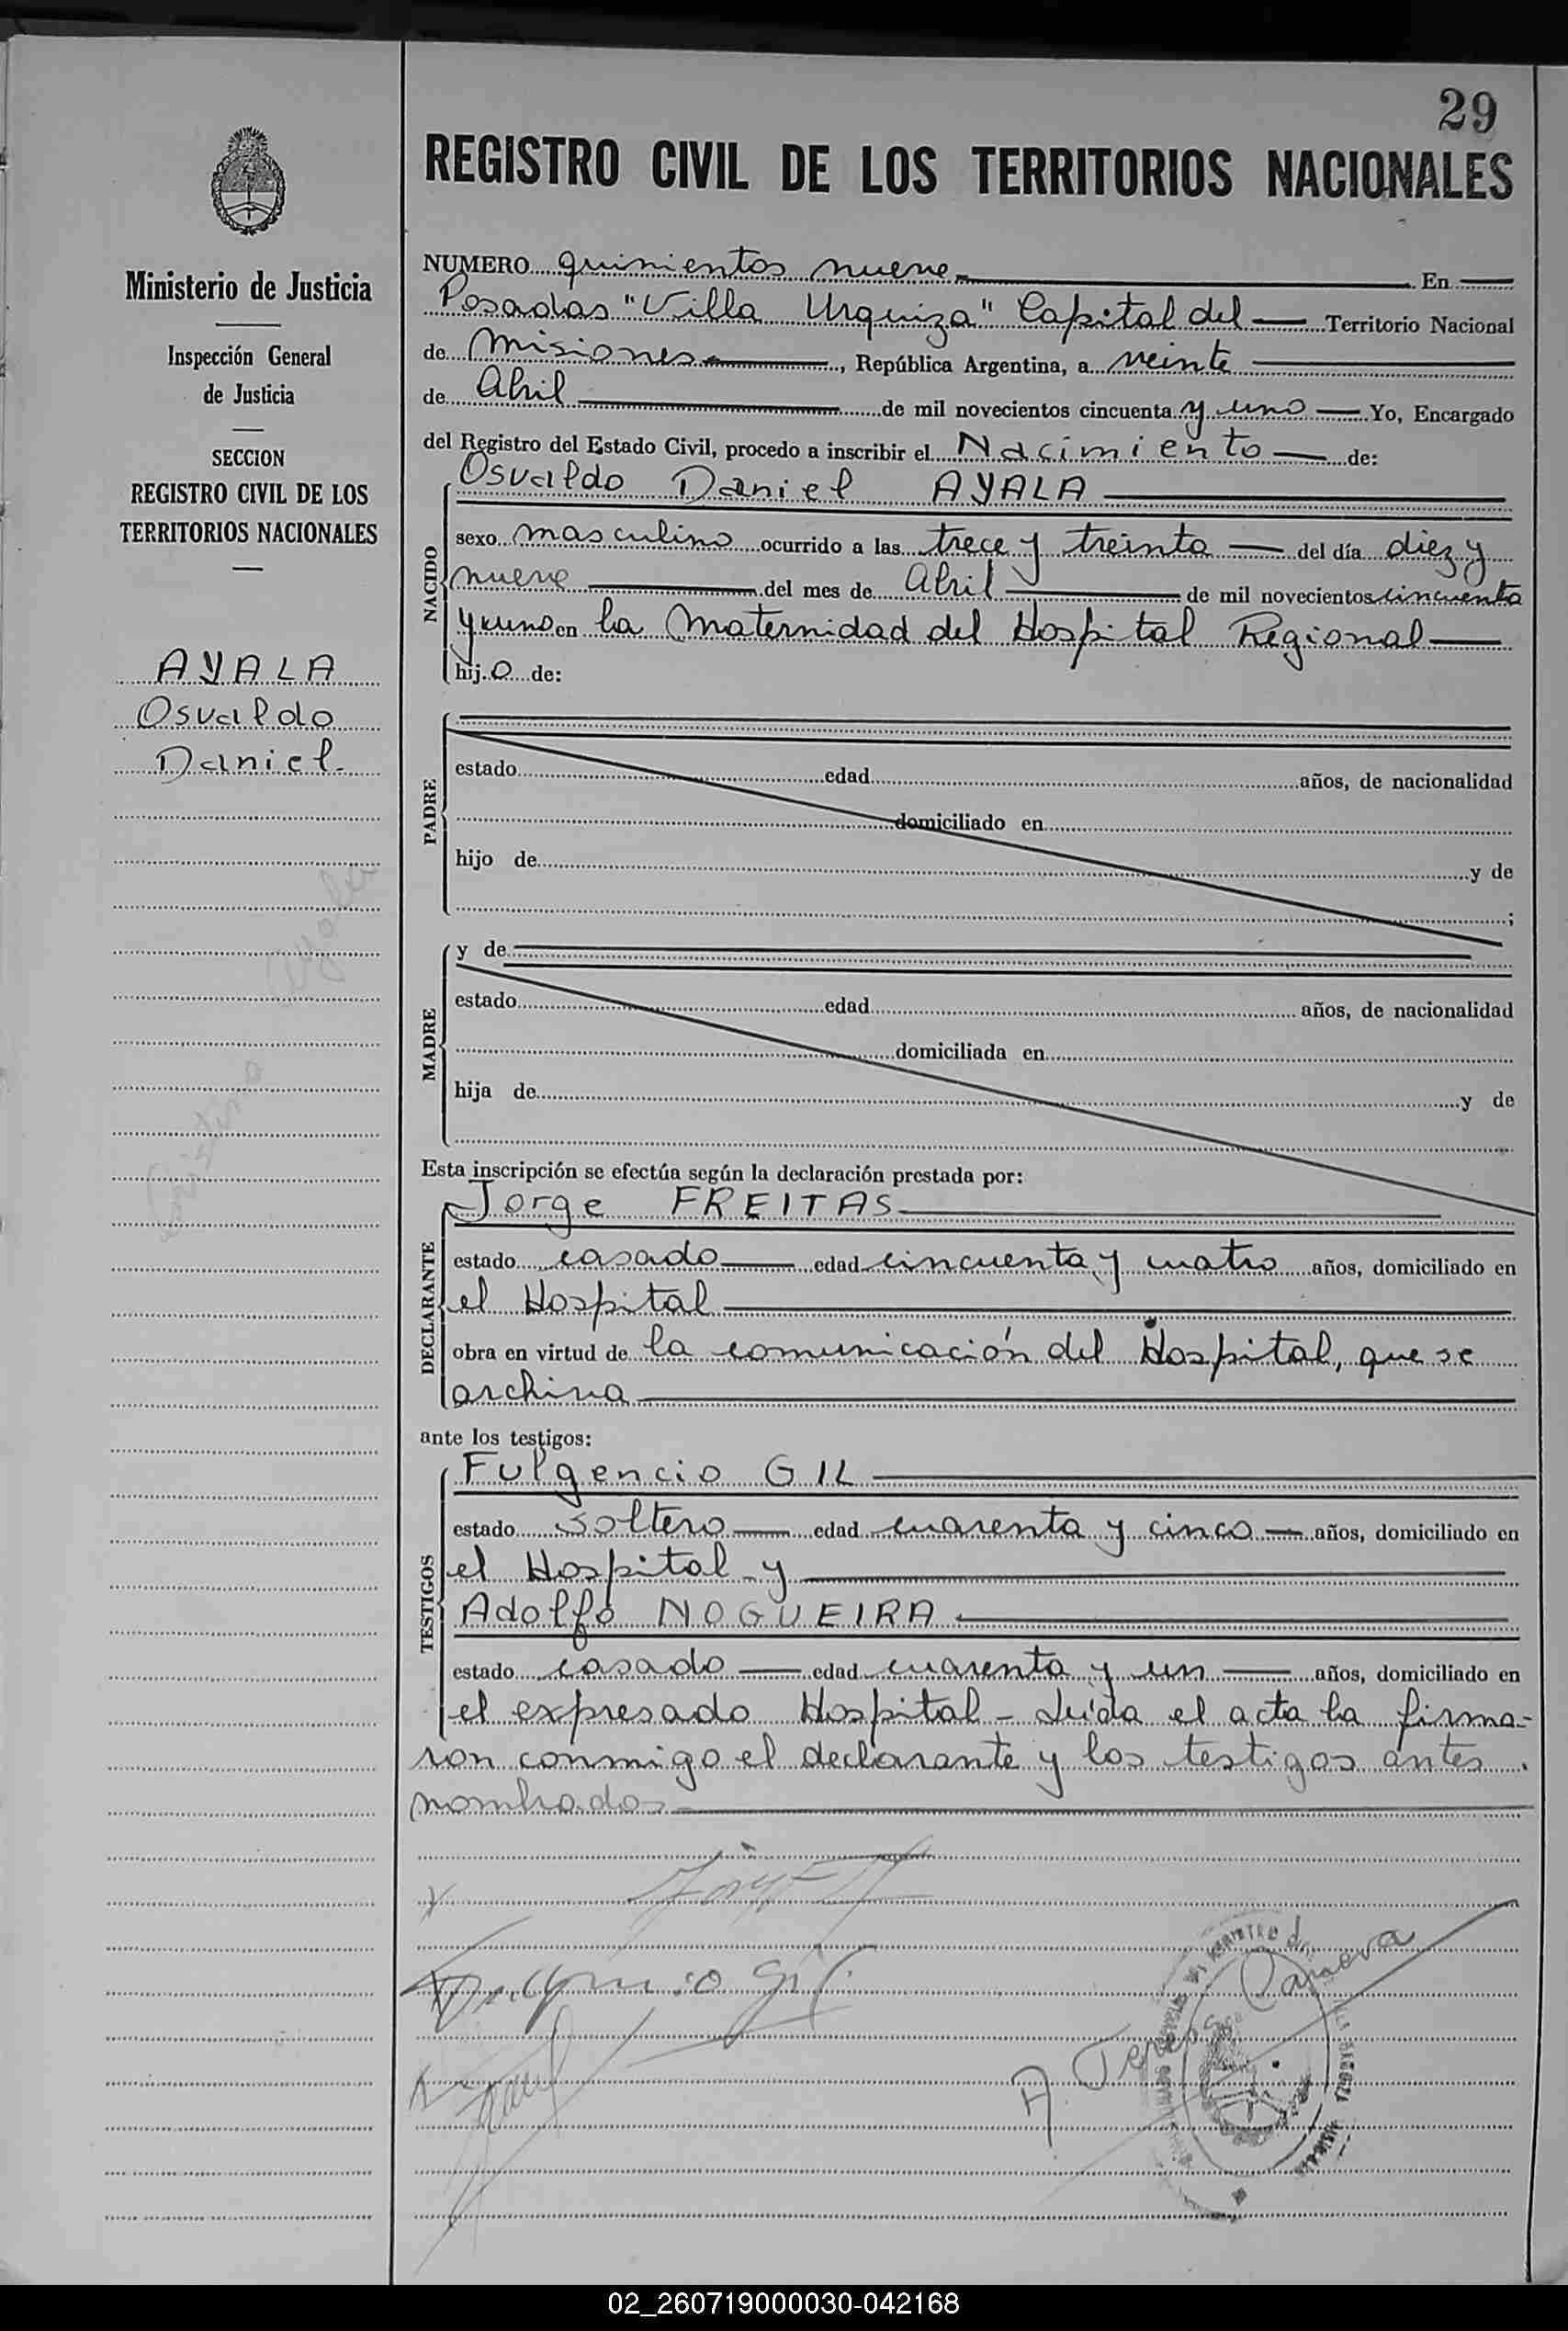 29
REGISTRO CIVIL DE LOS TERRITORIOS NACIONALES
Ministerio de Justicia
Inspección General
de Justicia
SECCION
REGISTRO CIVIL DE LOS
TERRITORIOS NACIONALES
AYALA
Osvaldo
Daniel.
NUMERO quinientos nueve En
Posadas "Villa Urquiza" Capital del Territorio Nacional
de Misiones, República Argentina, a veinte
de Abril de mil novecientos cincuenta y uno Yo, Encargado
del Registro del Estado Civil, procedo a inscribir el Nacimiento de:
NACIDO
Osvaldo Daniel AYALA
sexo masculino ocurrido a las trece y treinta del día diez y
nueve del mes de Abril de mil novecientos cincuenta
y uno en la Maternidad del Hospital Regional
hijo de:
PADRE
estado edad años, de nacionalidad
domiciliado en
hijo de y de
;
MADRE
y de
estado edad años, de nacionalidad
domiciliada en
hija de y de
Esta inscripción se efectúa según la declaración prestada por:
DECLARANTE
Jorge FREITAS
estado casado edad cincuenta y cuatro años, domiciliado en
el Hospital
obra en virtud de la comunicación del Hospital, que se
archiva
ante los testigos:
TESTIGOS
Fulgencio GIL
estado soltero edad cuarenta y cinco años, domiciliado en
el Hospital y
Adolfo NOGUEIRA
estado casado edad cuarenta y un años, domiciliado en
el expresado Hospital - Leída el acta la firma-
ron conmigo el declarante y los testigos antes
nombrados
Fulgencio Gil
A. Teresa Canova
02_260719000030-042168